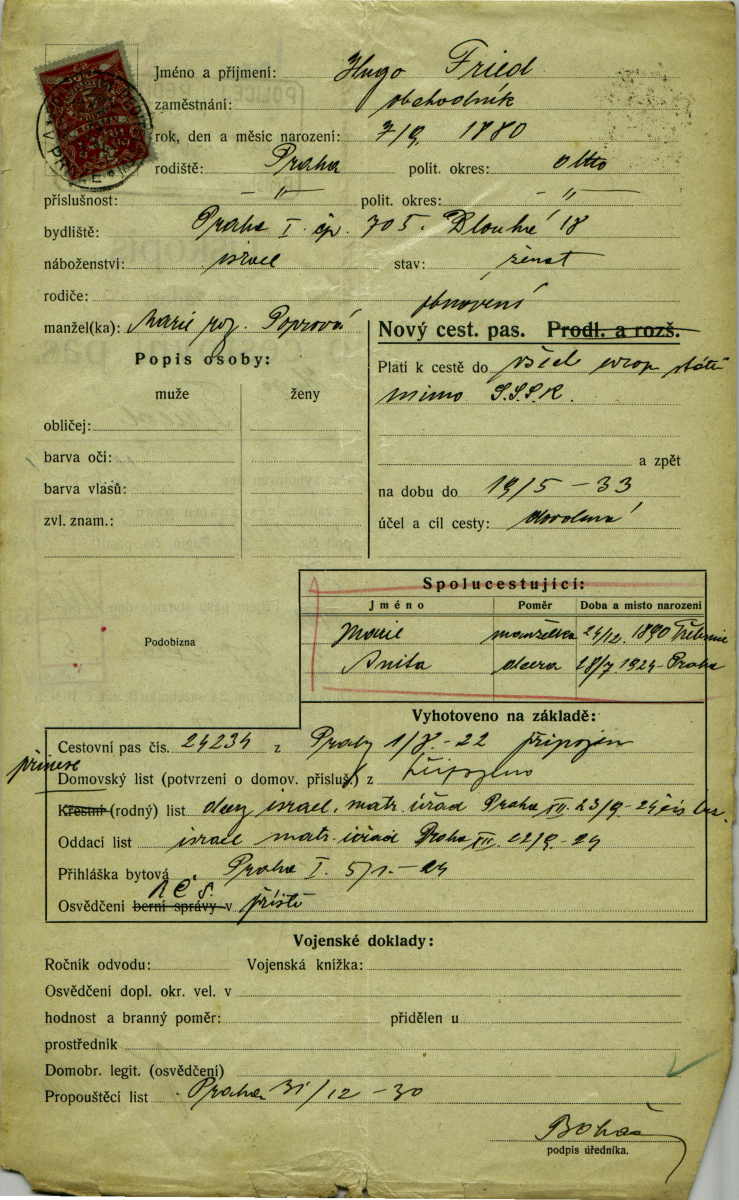 Jméno a příjmení: Hugo Fried
zaměstnání: obchodník
rok, den a měsíc narození: 7/9. 1880
rodiště: Praha polit. okres: otto
příslušnost: -"- polit. okres: -"-
bydliště: Praha I. čp. 705. Dlouhá 18
náboženství: israel stav: ženat
rodiče:
obnovení
manžel(ka): Marie roz. Poprová
Nový cest. pas. Prodl. a rozš.
Popis osoby:
muže ženy
obličej:
barva očí:
barva vlasů:
zvl. znam.:
Platí k cestě do všech evrop. států
mimo S.S.S.R.
a zpět
na dobu do 19/5 - 33
účel a cíl cesty: dovolená
Podobizna
Spolucestující:
Jméno Poměr Doba a místo narození
Marie manželka 24/12. 1890 Třebenice
Anita dcera 28/7 1924 - Praha
Vyhotoveno na základě:
Cestovní pas čís. 24234 z Prahy 1/8. - 22 připojen
přinese
Domovský list (potvrzení o domov. přísluš.) z připojeno
Křestní (rodný) list dcery israel. matr. úřad Praha 23/9 - 24
Oddací list israel matr. úřad Praha 22/9 - 24
Přihláška bytová Praha I. 5/1. - 24
Osvědčení berní správy v příště
Vojenské doklady:
Ročník odvodu: Vojenská knížka:
Osvědčení dopl. okr. vel. v
hodnost a branný poměr: přidělen u
prostředník
Domobr. legit. (osvědčení)
Propouštěcí list Praha 31/12 - 30
podpis úředníka.